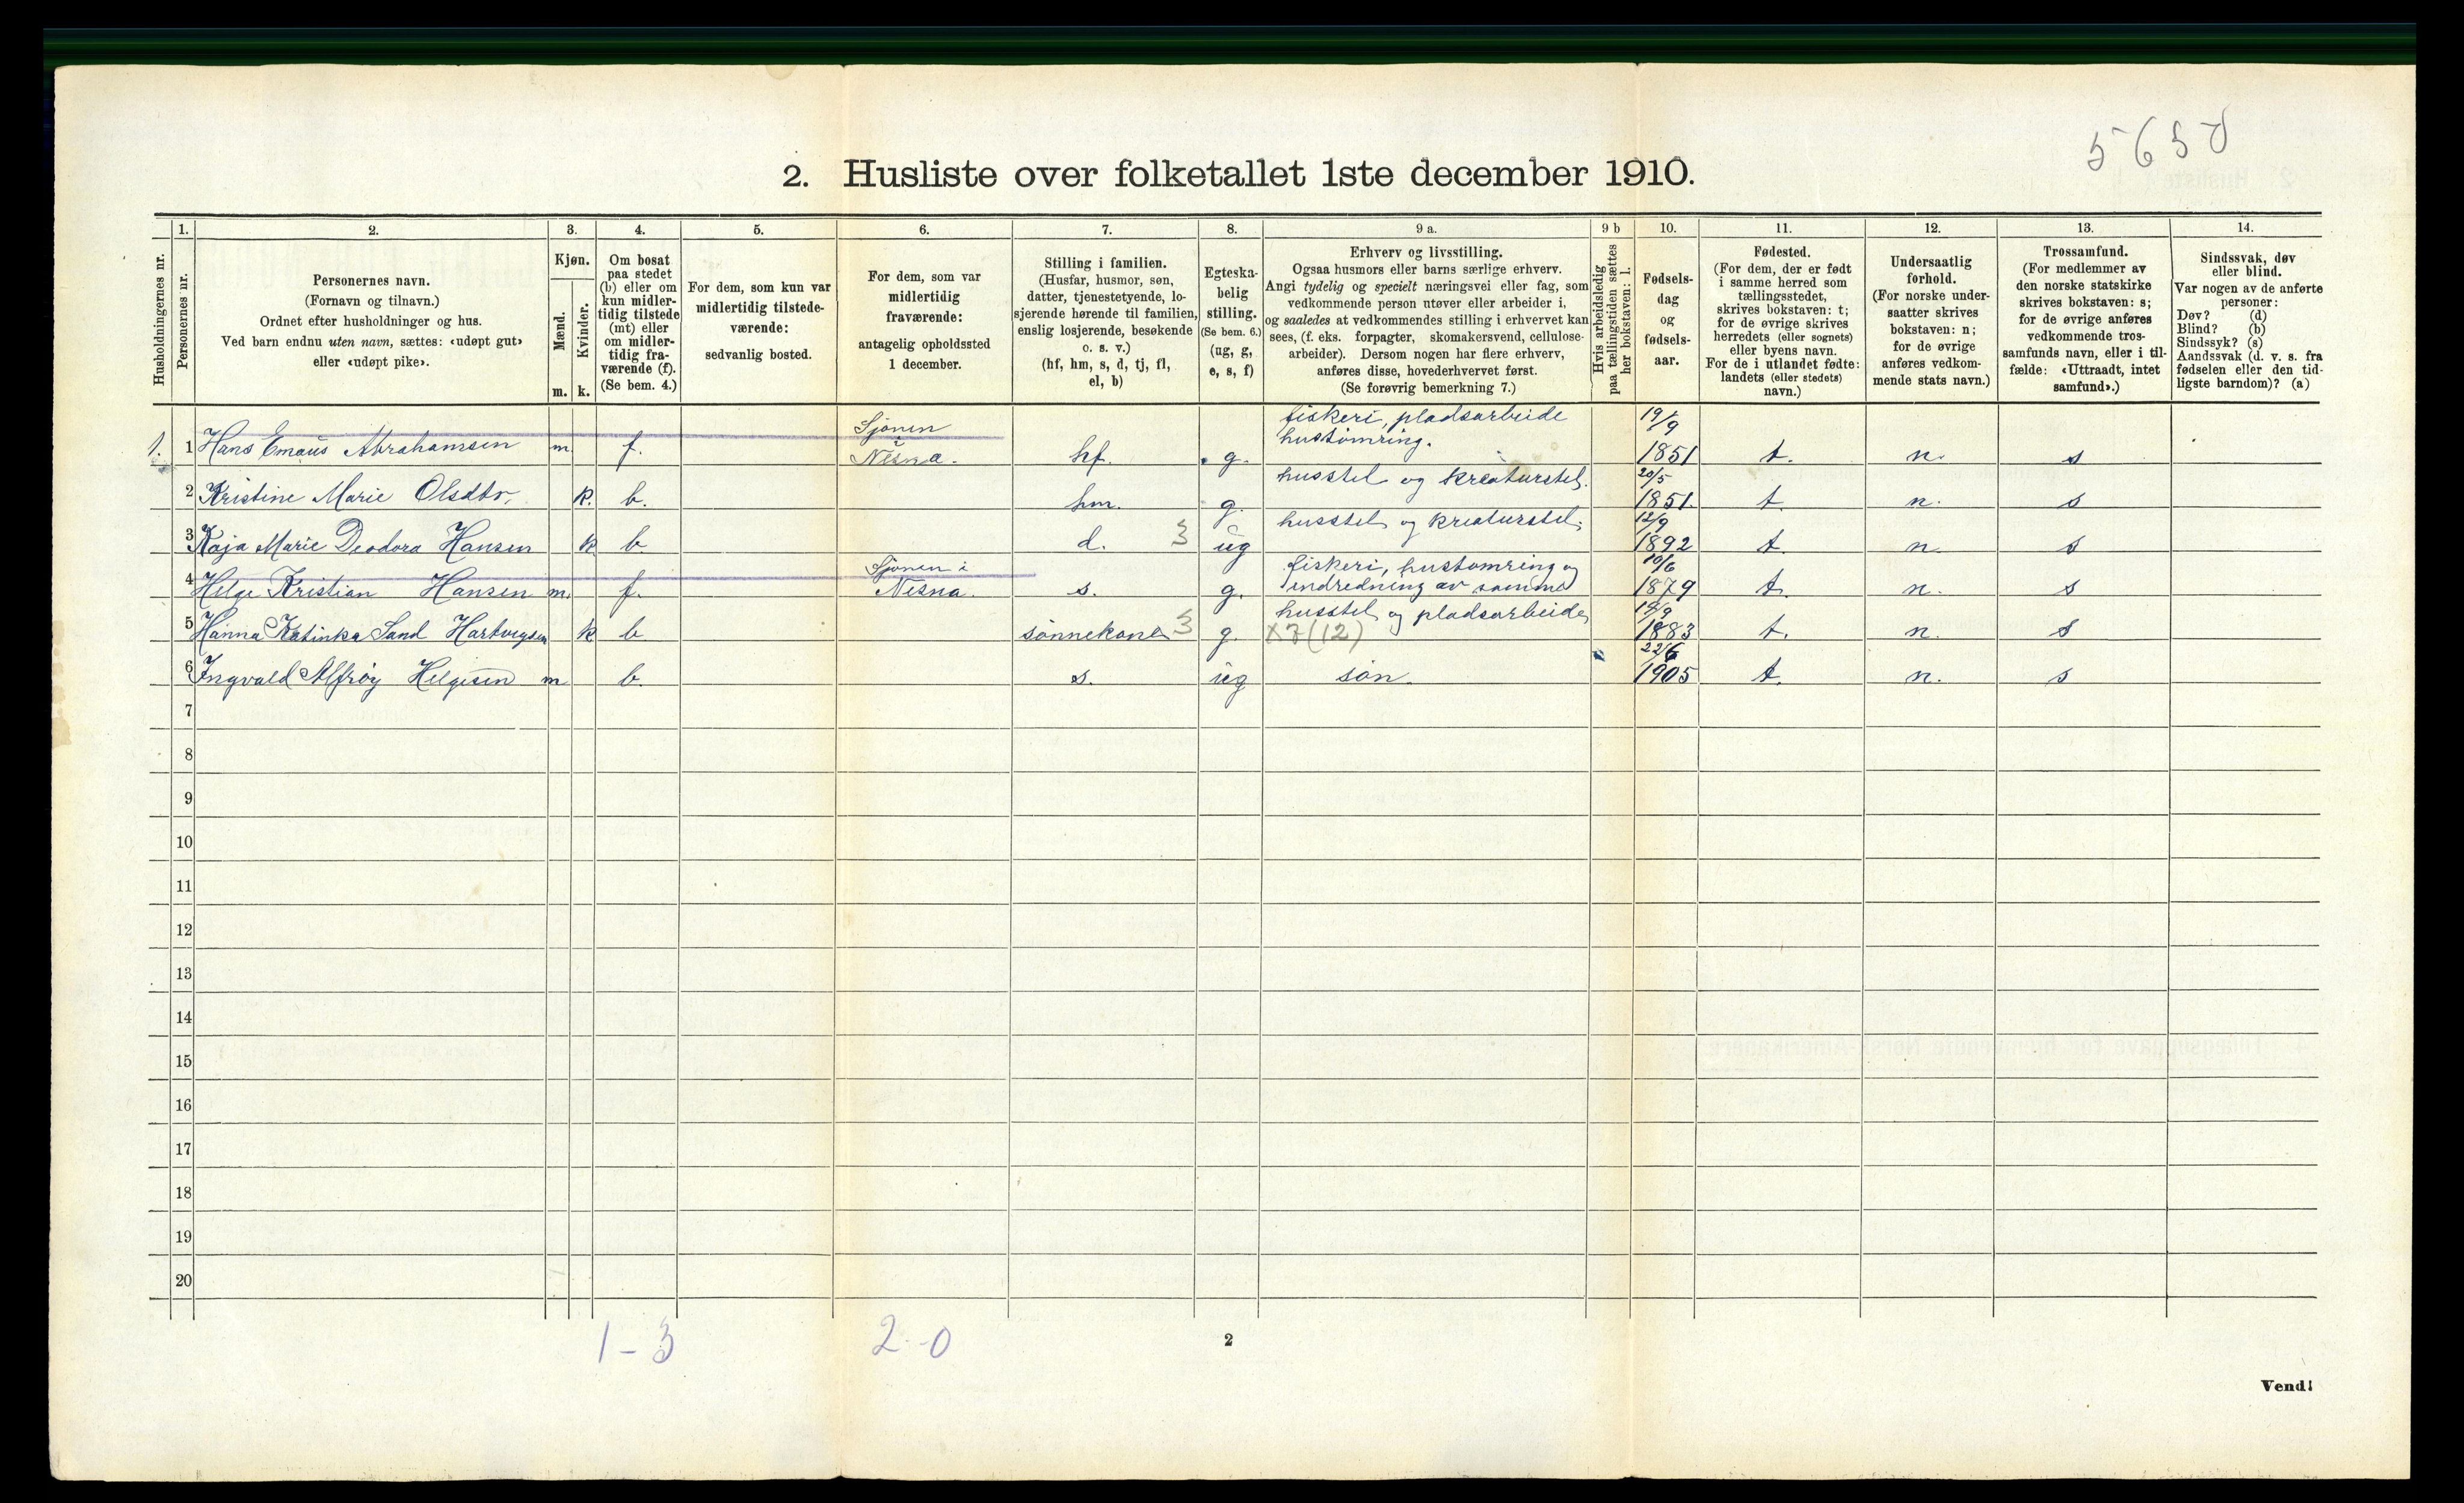 5650
2. Husliste over folketallet 1ste december 1910.
1. 2. 3. 4. 5. 6. 7. 8. 9 a. 9 b 10. 11. 12. 13. 14.
Husholdningernes nr.
Personernes nr.
Personernes navn.
(Fornavn og tilnavn.)
Ordnet efter husholdninger og hus.
Ved barn endnu uten navn, sættes: «udøpt gut»
eller «udøpt pike».
Kjøn.
Mænd.
Kvinder.
m. k.
Om bosat
paa stedet
(b) eller om
kun midler-
tidig tilstede
(mt) eller
om midler-
tidig fra-
værende (f).
(Se bem. 4.)
For dem, som kun var
midlertidig tilstede-
værende:
sedvanlig bosted.
For dem, som var
midlertidig
fraværende:
antagelig opholdssted
1 december.
Stilling i familien.
(Husfar, husmor, søn,
datter, tjenestetyende, lo-
sjerende hørende til familien,
enslig losjerende, besøkende
o. s. v.)
(hf, hm, s, d, tj, fl,
el, b)
Egteska-
belig
stilling.
(Se bem. 6.)
(ug, g,
e, s, f)
Erhverv og livsstilling.
Ogsaa husmors eller barns særlige erhverv.
Angi tydelig og specielt næringsvei eller fag, som
vedkommende person utøver eller arbeider i,
og saaledes at vedkommendes stilling i erhvervet kan
sees, (f. eks. forpagter, skomakersvend, cellulose-
arbeider). Dersom nogen har flere erhverv,
anføres disse, hovederhvervet først.
(Se forøvrig bemerkning 7.)
Hvis arbeidsledig
paa tællingstiden sættes
her bokstaven: l.
Fødsels-
dag
og
fødsels-
aar.
Fødested.
(For dem, der er født
i samme herred som
tællingsstedet,
skrives bokstaven: t;
for de øvrige skrives
herredets (eller sognets)
eller byens navn.
For de i utlandet fødte:
landets (eller stedets)
navn.)
Undersaatlig
forhold.
(For norske under-
saatter skrives
bokstaven: n;
for de øvrige
anføres vedkom-
mende stats navn.)
Trossamfund.
(For medlemmer av
den norske statskirke
skrives bokstaven: s;
for de øvrige anføres
vedkommende tros-
samfunds navn, eller i til-
fælde: «Uttraadt, intet
samfund».)
Sindssvak, døv
eller blind.
Var nogen av de anførte
personer:
Døv? (d)
Blind? (b)
Sindssyk? (s)
Aandssvak (d. v. s. fra
fødselen eller den tid-
ligste barndom)? (a)
Sjonen fiskeri, pladsarbeide 19/9
i hustømring.
1. 1 Hans Emaus Abrahamsen m f. Nesna. hf. g. 1851 t. n. s
husstel og kreaturstel. 20/5
2 Kristine Marie Olsdtr. k. b. hm. g. 1851. t. n. s
husstel og kreaturstel. 12/9
3 Kaja Marie Deodora Hansen k b d. 3 ug 1892 t. n. s
Sjonen i fiskeri, hustømring og 10/6
4 Helge Kristian Hansen m. f. Nesna. s. g. indredning av samme 1879 t. n. s
husstel og pladsarbeide
5 Hanna Katinka Sand Hartvigsen k b sønnekone 3 g. X7(12) 1883 t. n. s
22/6
6 Ingvald Alfrøy Helgesen m b. s. ug søn. 1905 t. n. s
7
8
9
10
11
12
13
14
15
16
17
18
19
20
1-3 2-0 2
Vend!